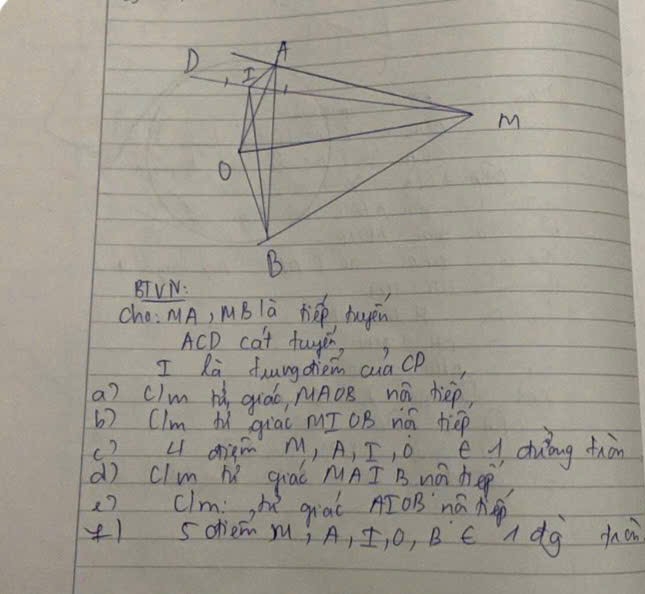 D
A
I
M
O
B
BTVN:
Cho: MA, MB là tiếp tuyến
ACD cát tuyến,
I là trung điểm của CD
a) C/m tứ giác MAOB nội tiếp
b) C/m tứ giác MIOB nội tiếp
c) 4 điểm M, A, I, O ∈ 1 đường tròn
d) C/m tứ giác MAIB nội tiếp
e) C/m: tứ giác AIOB nội tiếp
f) 5 điểm M, A, I, O, B ∈ 1 đg tròn